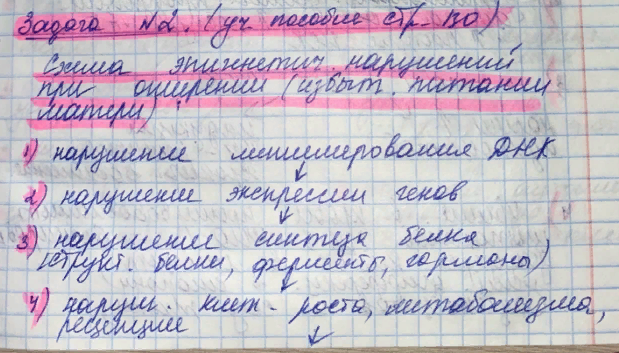 Задача №2. (уч пособие стр. 130)
Схема эпигенетич. нарушений
при ожирении (избыт. питании
матери)
1) нарушение метилирования ДНК
↓
2) нарушение экспрессии генов
↓
3) нарушение синтеза белка
(структ. белки, ферменты, гормоны)
↓
4) наруш. клет. роста, метаболизма,
рецепции
↓